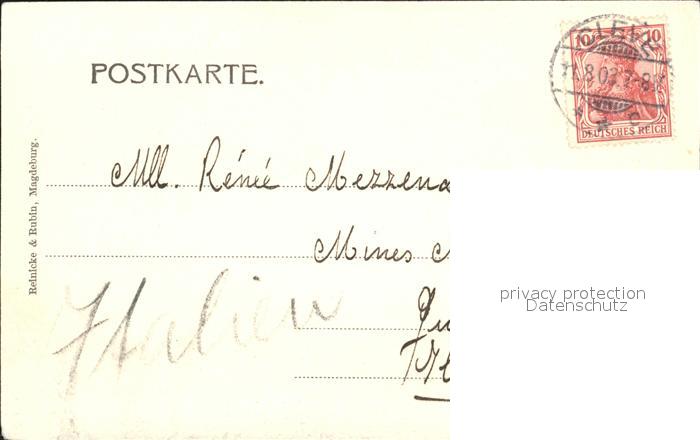 POSTKARTE.
10 10
CLEVE
.8.03.7-8
* * c
DEUTSCHES REICH
Reinicke & Rubin, Magdeburg.
Mll. Rénée Mezzena
Mines
Italien
privacy protection
Datenschutz